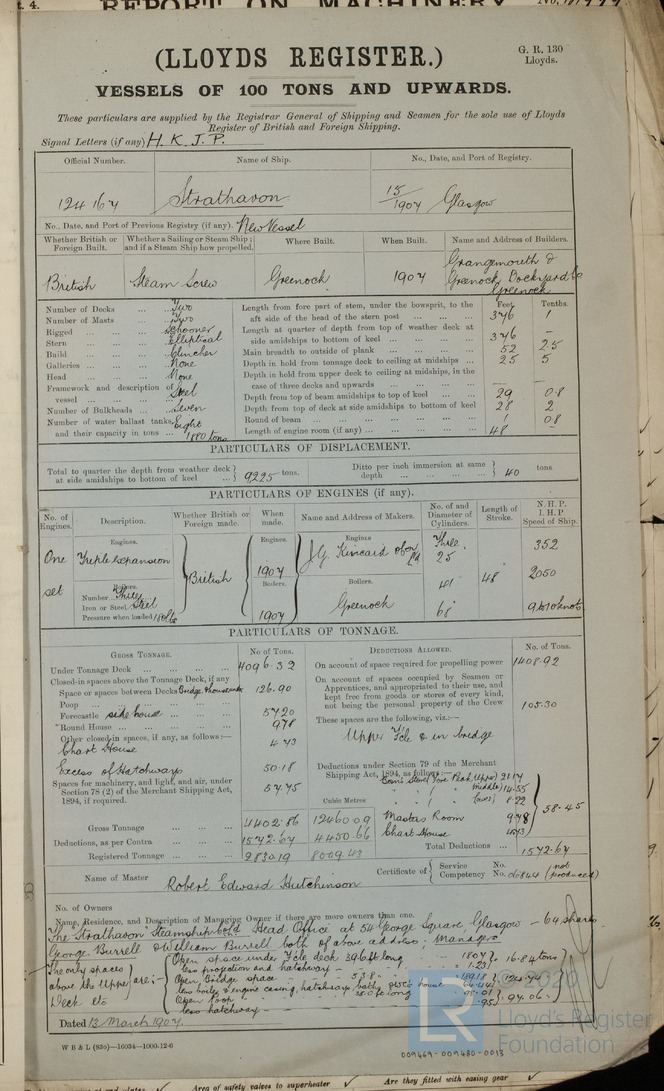 t. 4.
REPORT ON MACHINERY No.
(LLOYDS REGISTER.)
G. R. 130
Lloyds.
VESSELS OF 100 TONS AND UPWARDS.
These particulars are supplied by the Registrar General of Shipping and Seamen for the sole use of Lloyds
Register of British and Foreign Shipping.
Signal Letters (if any) H. K. J. P.
Official Number. Name of Ship. No., Date, and Port of Registry.
124167 Strathavon 15/1907 Glasgow
No., Date, and Port of Previous Registry (if any). New Vessel
Whether British or Foreign Built. Whether a Sailing or Steam Ship; and if a Steam Ship how propelled. Where Built. When Built. Name and Address of Builders.
British Steam Screw Greenock 1907 Grangemouth & Greenock Dockyard Co Greenock
Number of Decks ... Two
Number of Masts ... Two
Rigged ... Schooner
Stern ... Elliptical
Build ... Clincher
Galleries ... None
Head ... None
Framework and description of vessel ... Steel
Number of Bulkheads ... Seven
Number of water ballast tanks, and their capacity in tons ... Eight 1180 tons
Feet. Tenths.
Length from fore part of stem, under the bowsprit, to the aft side of the head of the stern post ... 376 1
Length at quarter of depth from top of weather deck at side amidships to bottom of keel ... 376 –
Main breadth to outside of plank ... 52 25
Depth in hold from tonnage deck to ceiling at midships ... 25 5
Depth in hold from upper deck to ceiling at midships, in the case of three decks and upwards ... — —
Depth from top of beam amidships to top of keel ... 29 08
Depth from top of deck at side amidships to bottom of keel 28 2
Round of beam ... 1 08
Length of engine room (if any) ... 48
PARTICULARS OF DISPLACEMENT.
Total to quarter the depth from weather deck at side amidships to bottom of keel ... 9225 tons.
Ditto per inch immersion at same depth ... 40 tons
PARTICULARS OF ENGINES (if any).
No. of Engines. Description. Whether British or Foreign made. When made. Name and Address of Makers. No. of and Diameter of Cylinders. Length of Stroke. N.H.P. I.H.P Speed of Ship.
Engines. Engines. Engines
One set Triple Expansion British 1907 J.G. Kincaid & Co Ld Three 25 41 68 48 352 2050
Boilers. Boilers. Boilers.
Number Three
Iron or Steel Steel
Pressure when loaded 180 lbs
1907 Greenock
PARTICULARS OF TONNAGE.
GROSS TONNAGE. No of Tons.
Under Tonnage Deck ... 4096.32
Closed-in spaces above the Tonnage Deck, if any
Space or spaces between Decks Bridge house 126.90
Poop ...
Forecastle side house ... 57.20
Round House ... 9.78
Other closed-in spaces, if any, as follows:—
Chart House 4.73
Excess of Hatchways 50.18
Spaces for machinery, and light, and air, under Section 78 (2) of the Merchant Shipping Act, 1894, if required. 57.75
Cubic Metres
Gross Tonnage ... 4402.86 12460.09
Deductions, as per Contra ... 1572.67 4450.66
Registered Tonnage ... 2830.19 8009.43
DEDUCTIONS ALLOWED. No. of Tons.
On account of space required for propelling power 1408.92
On account of spaces occupied by Seamen or Apprentices, and appropriated to their use, and kept free from goods or stores of every kind, not being the personal property of the Crew 105.30
These spaces are the following, viz.:—
Upper Fcle & in bridge
Deductions under Section 79 of the Merchant Shipping Act, 1894, as follows:—
Bosn's Store (Fore Peak Upper) 21.17
" " ( " Middle) 14.55
" " ( " Lower) 8.22
Masters Room 9.78
Chart House 4.73
58.45
Total Deductions ... 1572.67
Name of Master Robert Edward Hutchinson
Certificate of Service Competency No. No. 06844 (not produced)
No. of Owners
Name, Residence, and Description of Managing Owner if there are more owners than one.
The "Strathavon" Steamship Co Ld Head Office at 54 George Square, Glasgow — 64 shares
George Burrell & William Burrell both of above address; Managers
The only spaces above the Upper Deck etc are:—
Open space under Fcle deck 39.6 ft long 18.07
less projection and hatchway 1.23
16.84 tons
Open Bridge space
less boiler & engine casing, hatchways
124.44
Open Poop
less hatchway .95
97.06
Dated 13 March 1907.
W B & L (83o)—16034—1000-12-6
© 2020
LR
Lloyd's Register
Foundation
009469-009480-0013
Area of safety valves to superheater
Are they fitted with easing gear